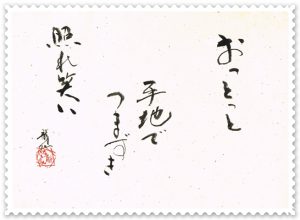 おっとっと
平地で
つまずき
照れ笑い